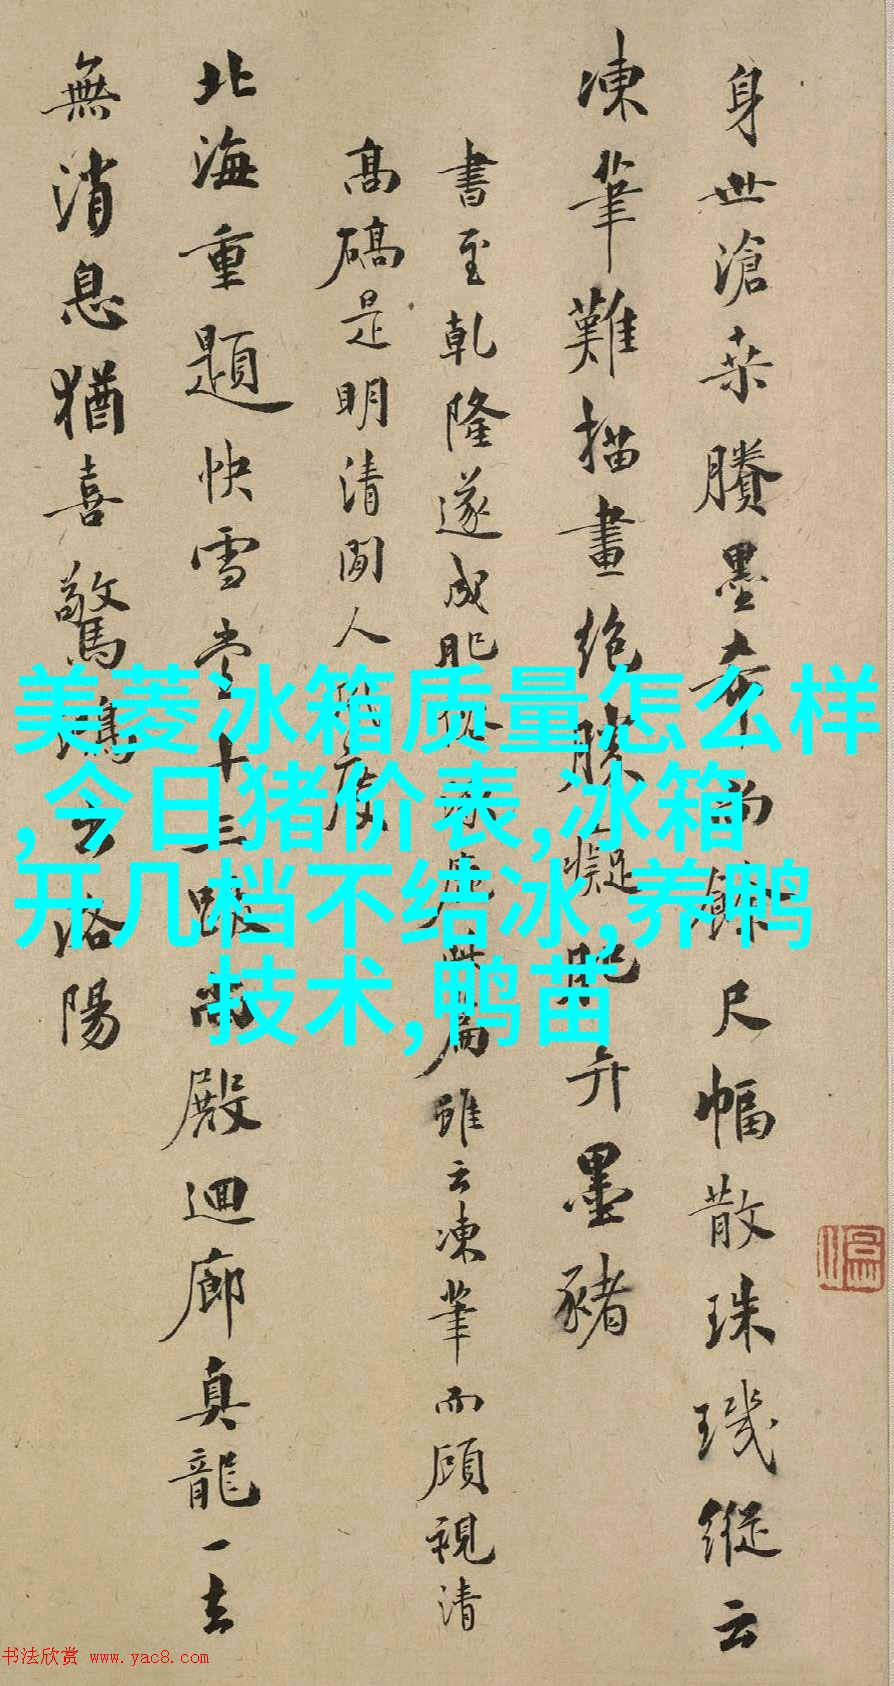 身世滄桑賸墨希尚餘尺幅散珠璣縱云
凍筆難描畫絶勝癡肥弁墨豬
書至乾隆遂成肥俗塵此篇雖云凍筆而顧視清
高碻是明清間人度
北海重題快雪堂十三跋殿迴廊真龍一去
無消息猶喜驚鴻洛陽
美菱冰箱质量怎么样
,今日猪价表,冰箱
开几档不结冰,养鸭
技术,鸭苗
书法欣赏 www.yac8.com